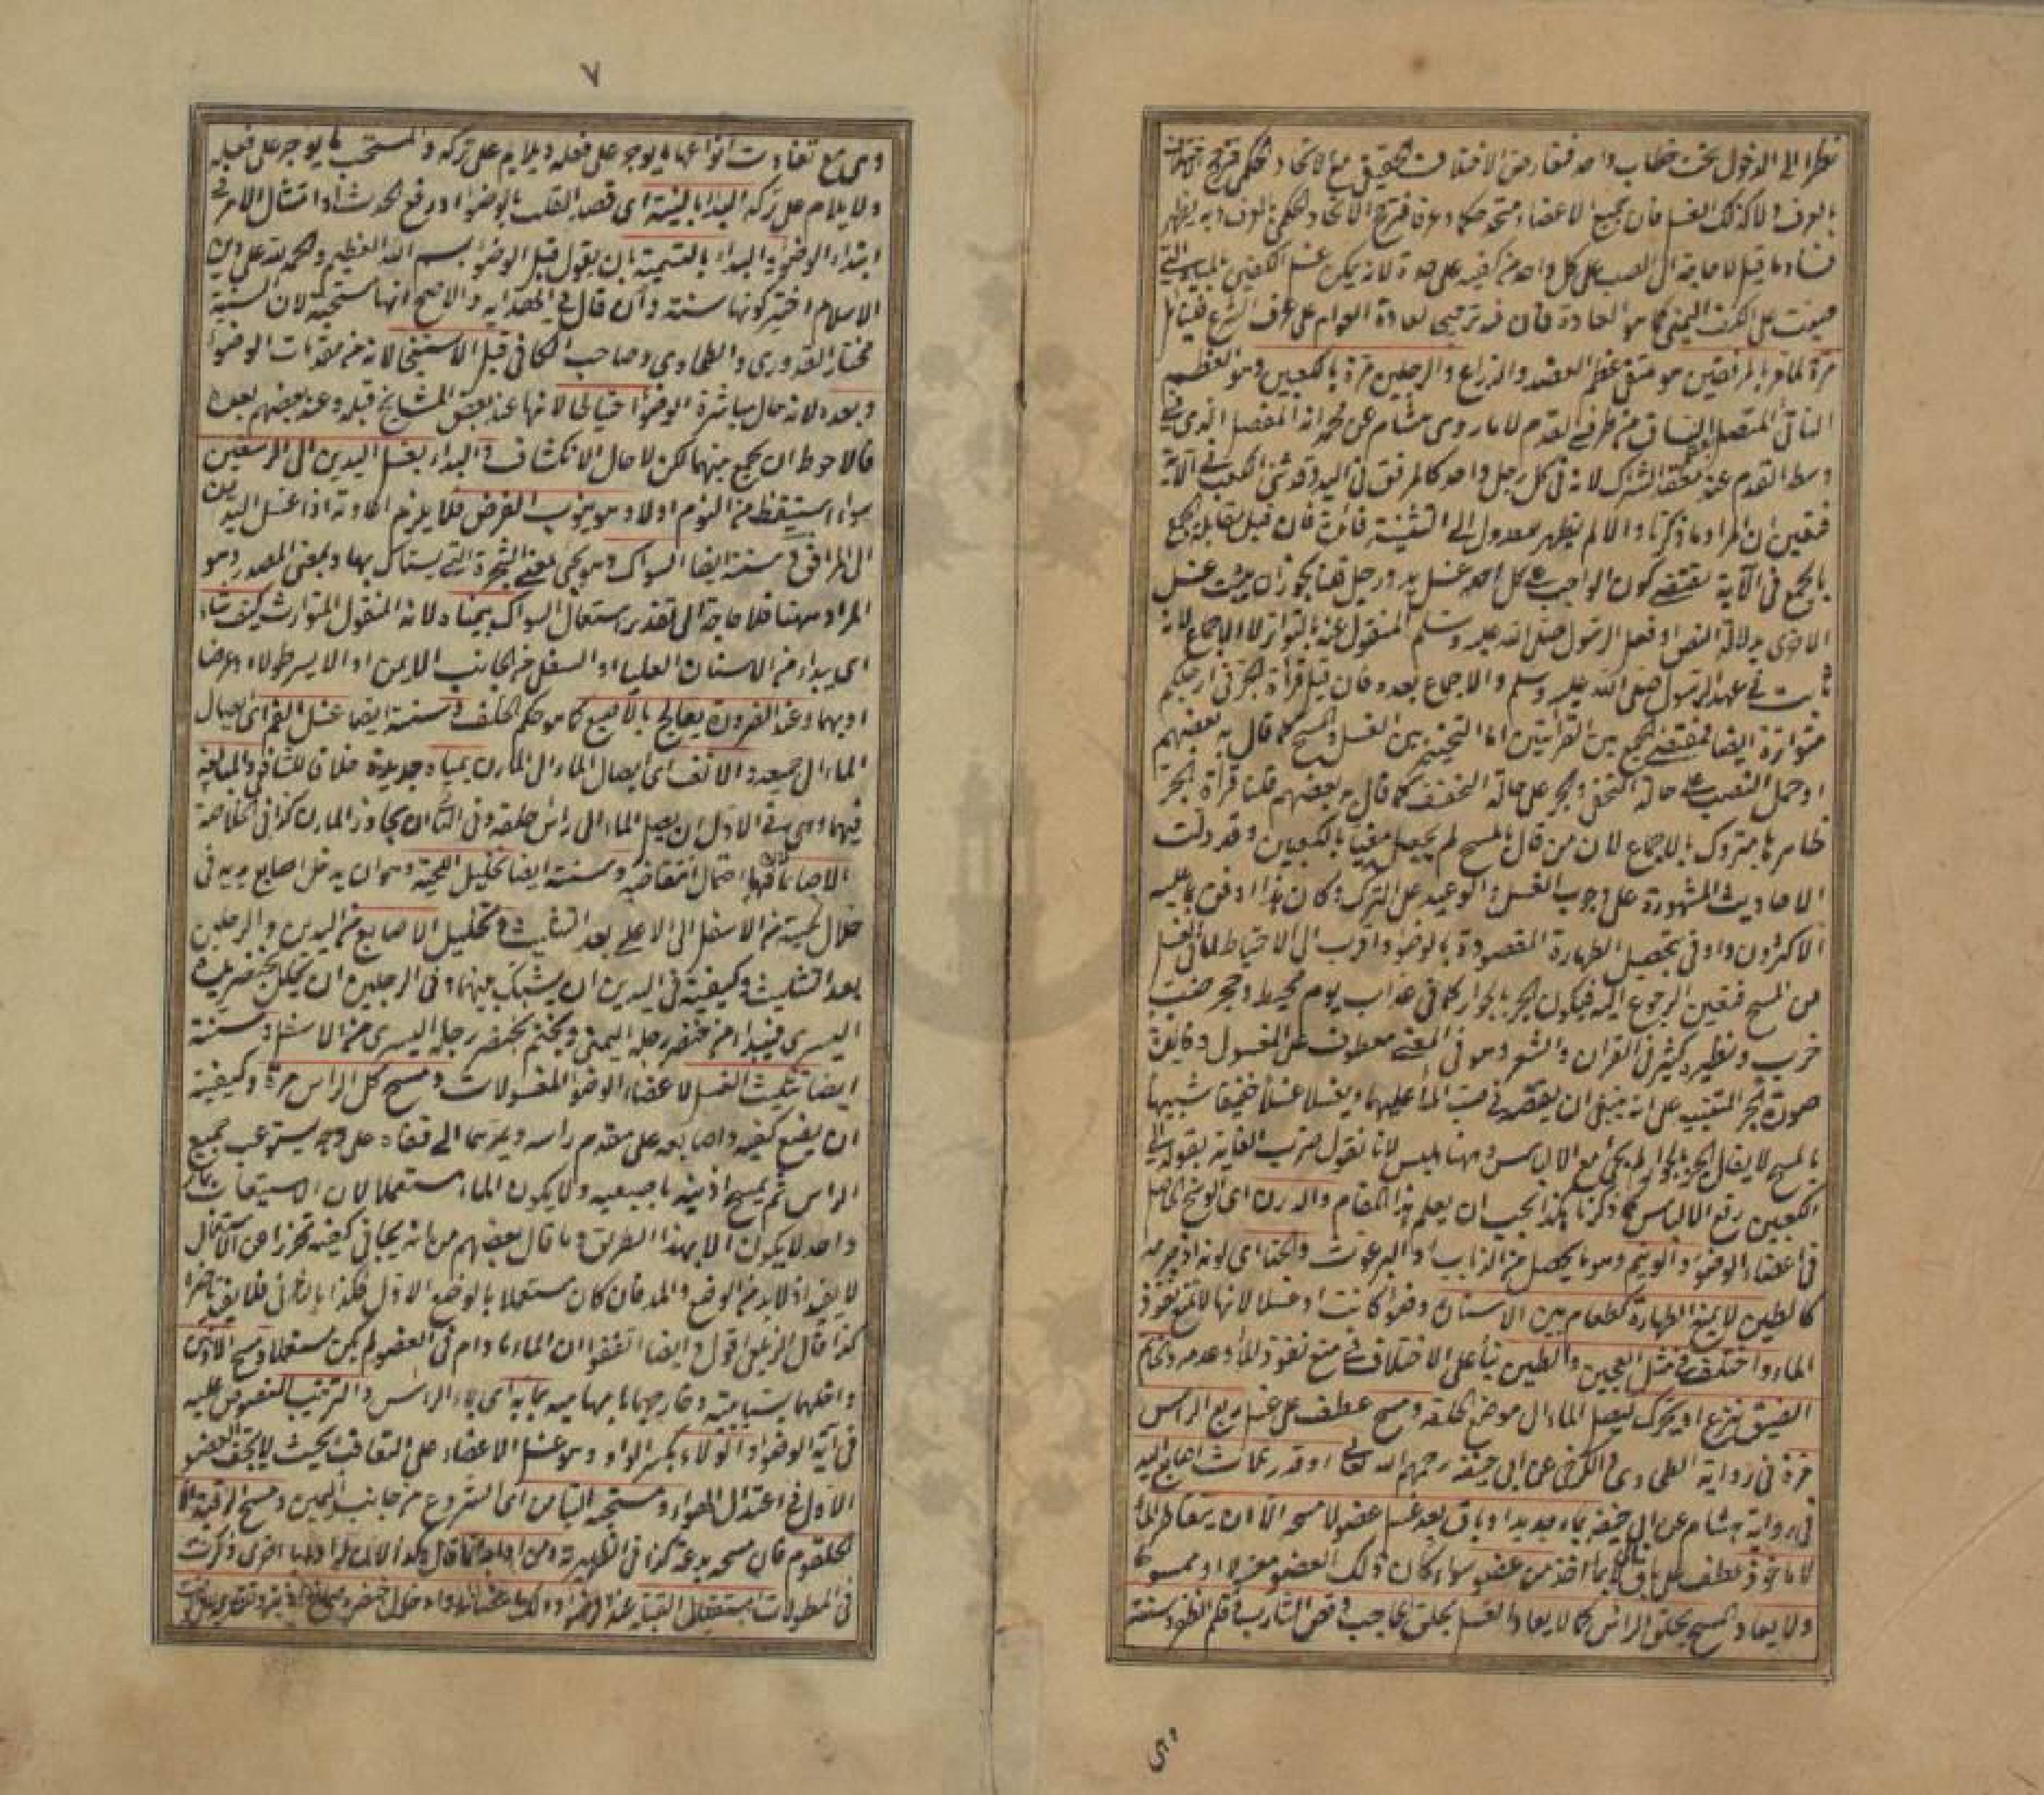 نظرا الى الدخول تحت خطاب واحد فتعارض الاختلاف الحقيقي مع الاتحاد الحكمي فترجح
بالعرف ولا كذلك الغسل فان جميع الاعضاء متحد حكما وعرفا فترجح الاتحاد الحكمي بالعرف وبه يظهر
فساد ما قيل لا حاجة الى الصب على كل واحد من كفيه على حدة لانه يمكن غسل الكفين بالمياه التي
صبت على الكف اليمنى كما هو العادة فان فيه ترجيحا لعادة العوام على عرف الشرع
مرة لما مر بالمرفقين هو ملتقى عظم العضد والذراع والرجلين مرة بالكعبين وهو العظم
الناتئ المتصل بالساق من طرف القدم لا ما روى هشام عن محمد انه المفصل الذي في
وسط القدم عند معقد الشراك لانه في كل رجل واحد كالمرفق في اليد وقد ثنى الكعب في الآية
فتعين ان المراد ما ذكرنا والا لم يظهر لعدول الى التثنية فائدة فان قيل مقابلة الجمع
بالجمع في الآية تقتضي كون الواجب على كل احد غسل يد ورجل قلنا يجوز ان يثبت غسل
الاخرى بدلالة النص او فعل الرسول صلى الله عليه وسلم المنقول عنه بالتواتر لا بالاجماع لانه
ثابت في عهد الرسول صلى الله عليه وسلم والاجماع بعده فان قيل قرأة الجر في ارجلكم
متواترة ايضا فمقتضى الجمع بين القرائتين اما التخيير بين الغسل والمسح كما قال به بعضهم
او حمل النصب على حالة التخفي والجر على حالة التخفف كما قال به بعضهم قلنا قرأة الجر
ظاهرها متروك بالاجماع لان من قال بالمسح لم يجعل مغيا بالكعبين وقد دلت
الاحاديث المشهورة على وجوب الغسل والوعيد على الترك وكان هذا اوفق بما عليه
الاكثرون واوفى بتحصيل الطهارة المقصودة بالوضوء واقرب الى الاحتياط لما في الغسل
من المسح فتعين الرجوع اليه فيكون الجر بالجوار كما في عذاب يوم محيط وجحر ضب
خرب ونظيره كثير في القرآن والشعر وهو في المعنى معطوف على المغسول وفائدة
صورة الجر التنبيه على انه ينبغي ان يقتصد في صب الماء عليهما ويغسلا غسلا خفيفا شبيها
بالمسح لا يقال الجر بالجوار لم يجئ مع الالباس وههنا يلبس لانا نقول ضرب الغاية بقوله الى
الكعبين رفع الالباس كما ذكرنا هكذا يجب ان يعلم هذا المقام والدرن اى الوسخ الحاصل
في اعضاء الوضوء والونيم وهو ما يحصل من الذباب او البرغوث والحناء اى لونه اذ جرمه
كالطين لا يمنع الطهارة كطعام بين الاسنان وضوءا كانت او غسلا لانها لا تمنع نفوذ
الماء واختلف في مثل العجين والطين بناء على الاختلاف في منع نفوذ الماء وعدمه والخاتم
الضيق ينزع او يحرك ليصل الماء الى موضع الحلقة ومسح عطف على غسل ربع الراس
مرة في رواية الطحاوي والكرخي عن ابي حنيفة رحمهم الله تعالى او قدر ثلاث اصابع اليد
في رواية هشام عن ابي حنيفة بماء جديد او باق بعد غسل عضو لا مسحه الا ان يتقاطر الماء
لا ماخوذ عطف على باق بما اخذ من عضو سواء كان ذلك العضو مغسولا او ممسوحا
ولا يعاد المسح بحلق الراس كما لا يعاد الغسل بحلق الحاجب وقص الشارب وقلم الظفر وسنته
وهي
٧
وهي مع تفاوت انواعها ما يوجر على فعله ويلام على تركه والمستحب ما يوجر على فعله
ولا يلام على تركه البدا بالنية اى قصد القلب بالوضوء او رفع الحدث او امتثال الامر في
ابتداء الوضوء والبداء بالتسمية بان يقول قبل الوضوء بسم الله العظيم والحمد لله على دين
الاسلام اختير كونها سنة وان قال في الهداية والاصح انها مستحبة لان السنية
مختار القدوري والطحاوي وصاحب الكافي قبل الاستنجاء لانه من مقدمات الوضوء
وبعده لانه حال مباشرة الوضوء احتياطا لانها عند بعض المشايخ قبله وعند بعضهم بعده
فالاحوط ان يجمع بينهما لكن لا حال الانكشاف والبداء بغسل اليدين الى الرسغين
سواء استيقظ من النوم اولا وهو ينوب الفرض فلا يلزم اعادته اذا غسل اليدين
الى المرافق وسنته ايضا السواك وهو يجئ بمعنى الشجرة التي يستاك بها وبمعنى المصدر وهو
المراد ههنا فلا حاجة الى تقدير استعمال السواك بيمناه لانه المنقول المتوارث كيف شاء
اى يبداء من الاسنان العليا او السفلى من الجانب الايمن او الايسر طولا او عرضا
او بهما وعند الضرورة يعالج بالاصبع كما هو حكم الخلف وسنته ايضا غسل الفم اى ايصال
الماء الى جميعه والانف اى ايصال الماء الى المارن بمياه جديدة خلافا للشافعي والمبالغة
فيهما وهي في الاول ان يصل الماء الى راس حلقه وفي الثاني ان يجاوز المارن كذا في الخلاصة
الا صائما ففيها احتمال انتقاضه وسنته ايضا تخليل اللحية وهو ان يدخل اصابع يديه في
خلال لحيته من الاسفل الى الاعلى بعد التثليث وتخليل الاصابع من اليدين والرجلين
بعد التثليث وكيفيته في اليدين ان يشبك بينهما وفي الرجلين ان يخلل بخنصر يده
اليسرى فيبدا من خنصر رجله اليمنى ويختم بخنصر رجله اليسرى من الاسفل وسنته
ايضا تثليث الغسل لاعضاء الوضوء المغسولات ومسح كل الراس مرة وكيفيته
ان يضع كفيه واصابعه على مقدم راسه ويمرهما الى قفاه على وجه يستوعب جميع
الراس ثم يمسح اذنيه باصبعيه ولا يكون الماء مستعملا لان الاستيعاب بماء
واحد لا يكون الا بهذا الطريق وما قال بعضهم من انه يجافي كفيه تحرزا عن الاستعمال
لا يفيد اذ لا بد من الوضع والمد فان كان مستعملا بالوضع الاول فكذا بالثاني فلا يفيد تاخيرا
كذا قال الزيلعي اقول وايضا اتفقوا ان الماء ما دام في العضو لم يكن مستعملا ومسح الاذنين
داخلهما بسبابتيه وخارجهما بابهاميه بمائه اى بماء الراس والترتيب المنصوص عليه
في آية الوضوء والولاء بكسر الواو وهو غسل الاعضاء على التعاقب بحيث لا يجف العضو
الاول في اعتدال الهواء ومستحبه التيامن اى الشروع من جانب اليمين ومسح الرقبة لا
الحلقوم فان مسحه بدعة كذا في الظهيرية ومن آدابه انما قال هكذا لان له آدابا اخرى ذكرت
في المطولات استقبال القبلة عند الوضوء ودلك اعضائه وادخال خنصره صماخ اذنيه وتقديمه